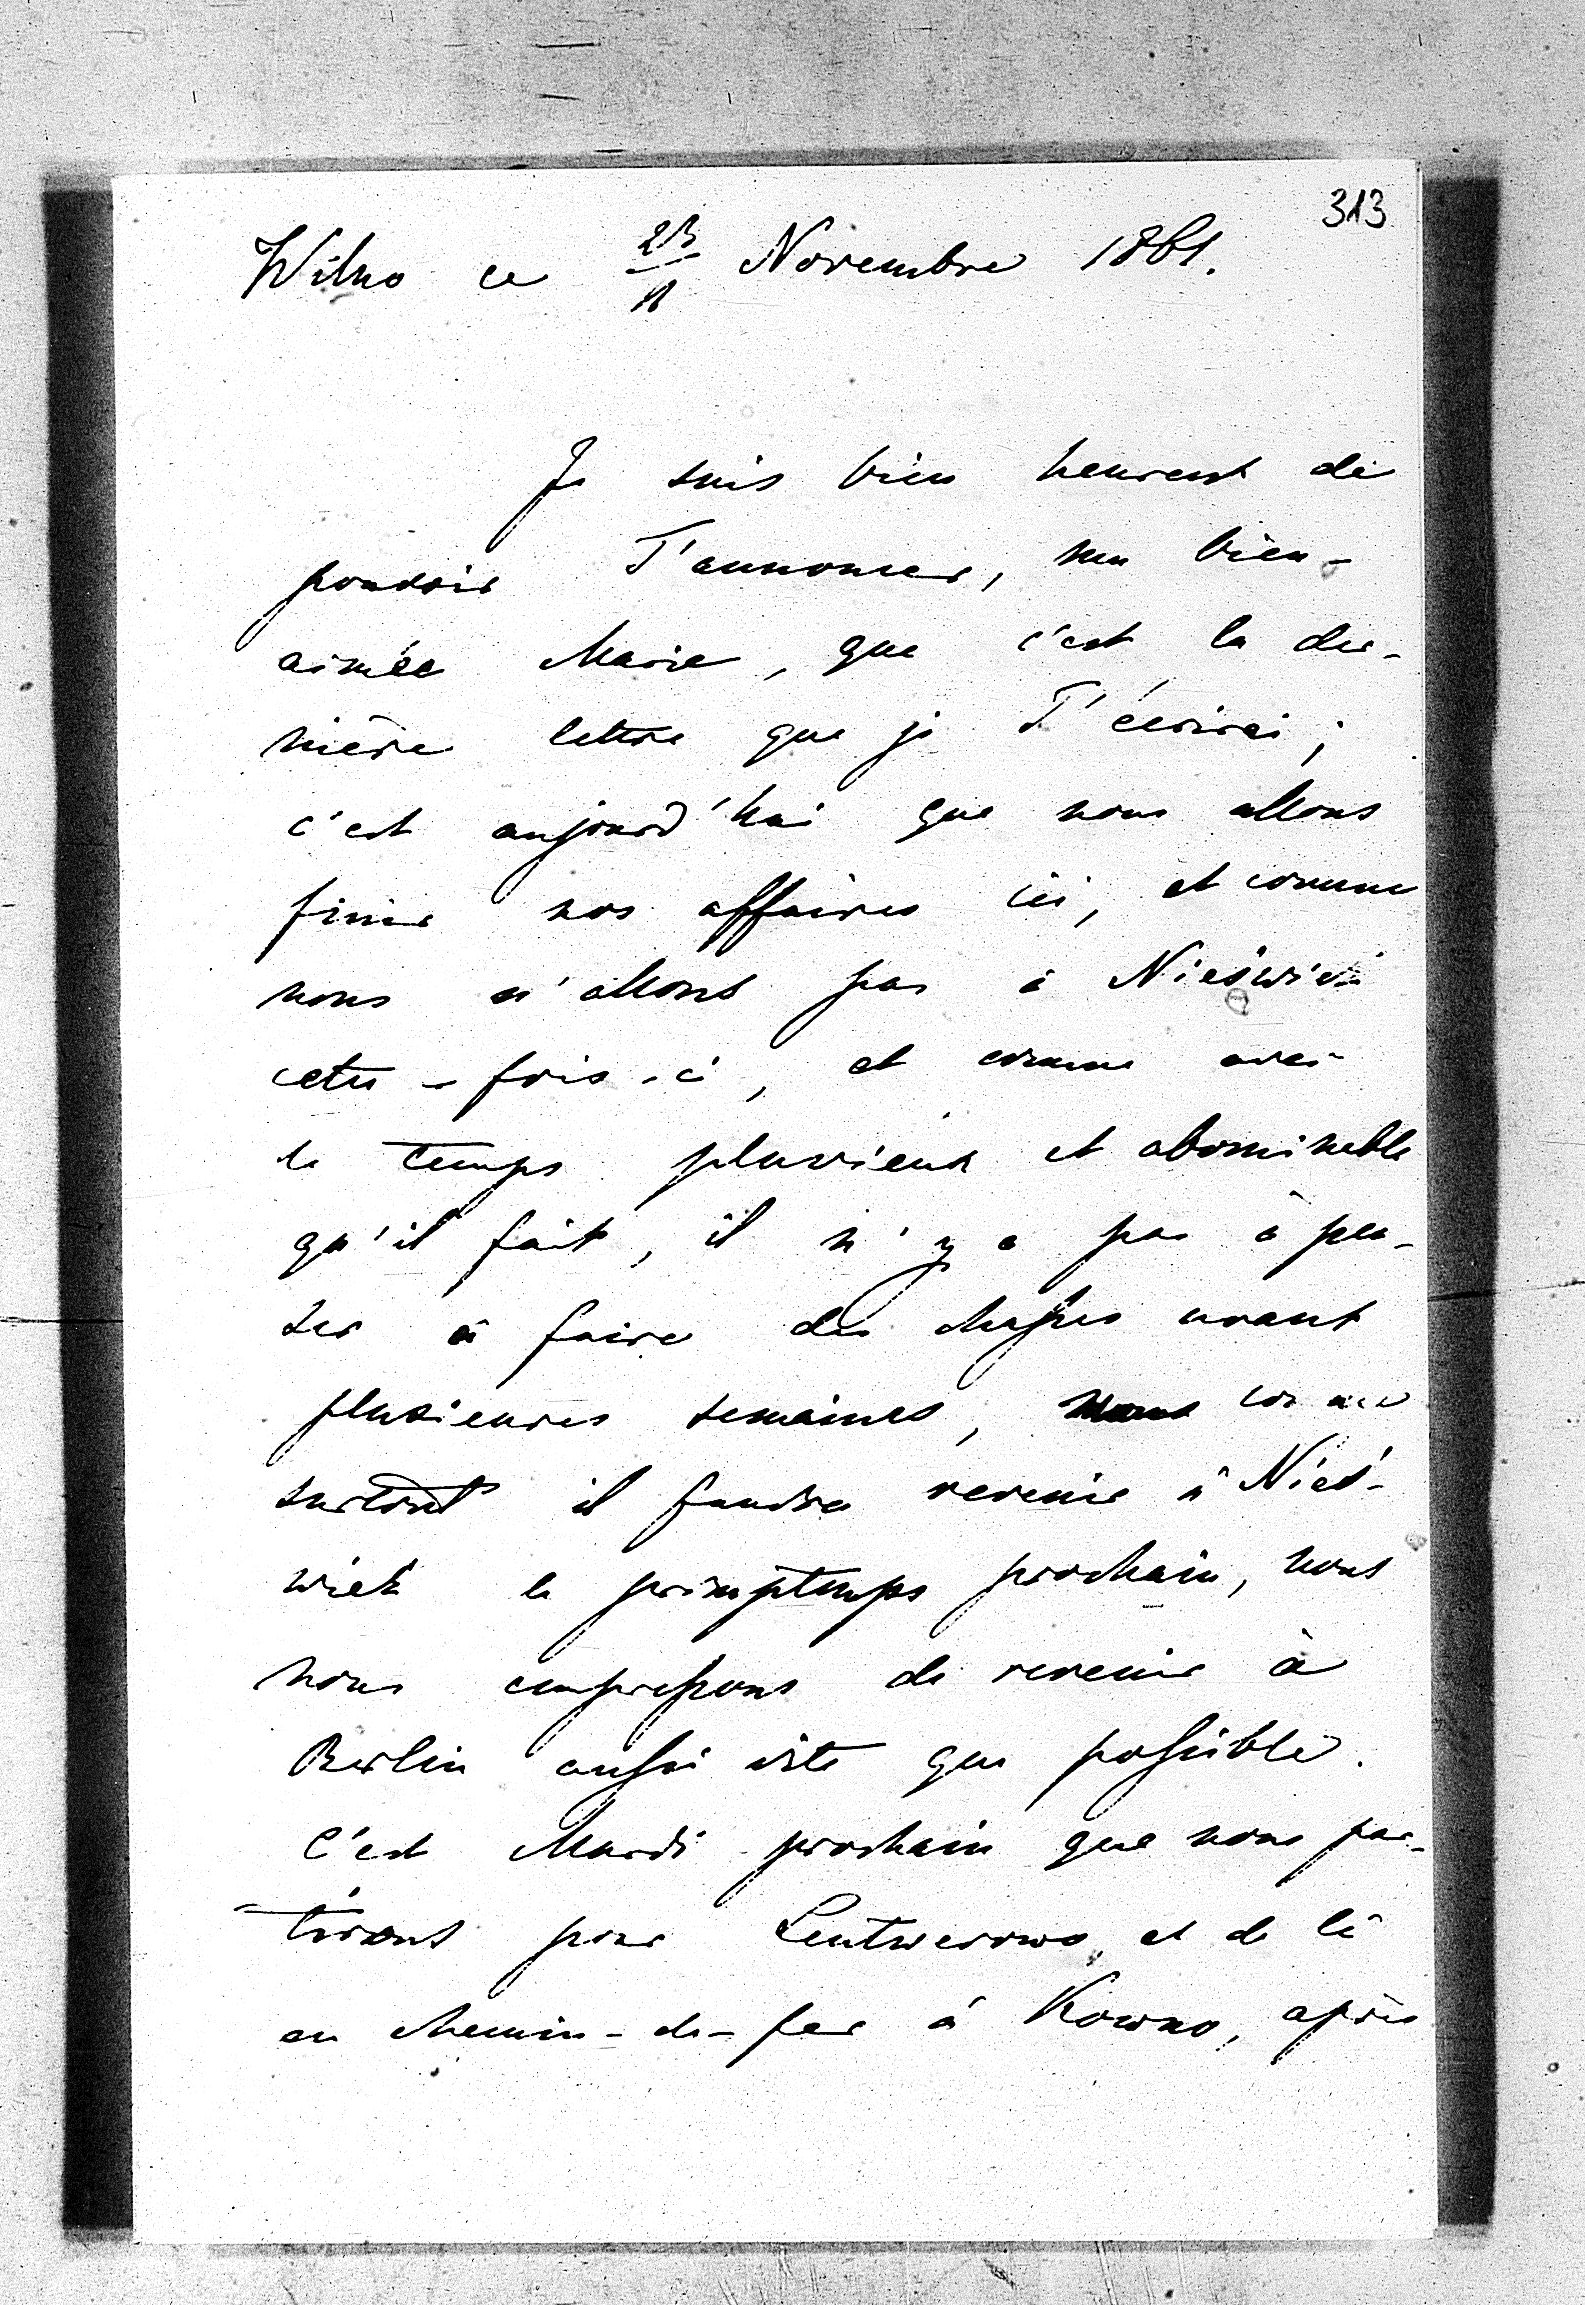 313
Wilno ce 23/11 Novembre 1861.
Je suis bien heureux de
pouvoir T'annoncer, ma bien-
aimée Marie, que c'est la der-
nière lettre que je T'écrirai;
c'est aujourd'hui que nous allons
finir nos affaires ici, et comme
nous n'allons pas à Nieświeź
cette-fois-ci, et comme avec
le temps pluvieux et abominable
qu'il fait, il n'y a pas à pen-
ser à faire des chasses avant
plusieures semaines, comme
surtout il faudra revenir à Nieś-
wież le primptemps prochain, nous
nous empressons de revenir à
Berlin aussi vite que possible.
C'est Mardi prochain que nous par-
tirons pour Lentwerowo, et de là
en chemin-de-fer à Kowno, après